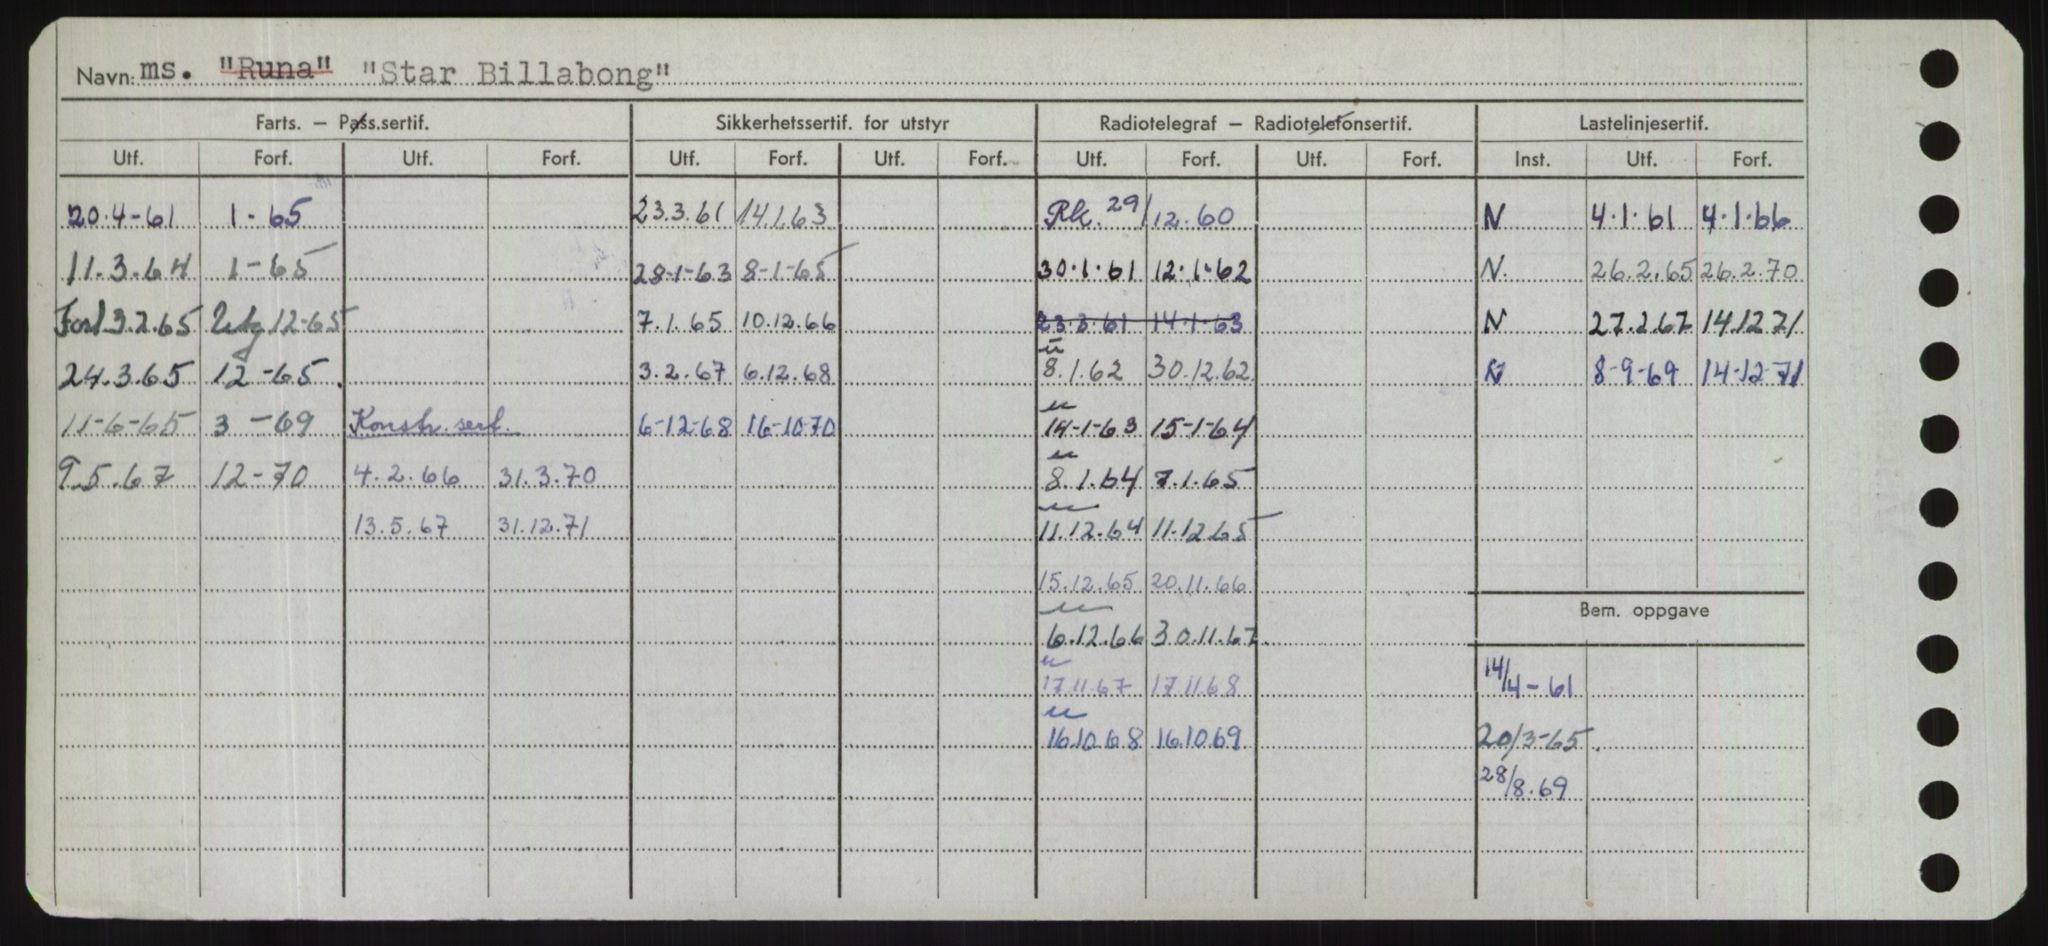 Navn: ms. "Runa" "Star Billabong"
Farts. — Pass.sertif. Sikkerhetssertif. for utstyr Radiotelegraf — Radiotelefonsertif. Lastelinjesertif.
Utf. Forf. Utf. Forf. Utf. Forf. Utf. Forf. Utf. Forf. Utf. Forf. Inst. Utf. Forf.
20.4-61 1-65 23.3.61 14.1.63 Rk. 29/12.60 N 4.1.61 4.1.66
11.3.64 1-65 28-1-63 8-1-65 30.1.61 12.1-62 N. 26.2.65 26.2.70
Forl 3.2.65 Utg 12-65 7.1.65 10.12.66 23.3.61 14.1.63 N 27.2.67 14.12.71
24.3.65 12-65. 3.2.67 6.12.68 8.1.62 30.12.62. N 8-9-69 14-12-71
11-6-65 3-69 Konstr. sert. 6-12-68 16-10-70 14-1-63 15-1-64
9.5.67 12-70 4.2.66 31.3.70 8.1.64 7.1.65
13.5.67 31.12.71 11.12.64 11.12.65
15.12.65 20.11.66
Bem. oppgave
6.12.66 30.11.67.
17.11.67 17.11.68 14/4-61
16.10.68 16.10.69 20/3-65.
28/8.69